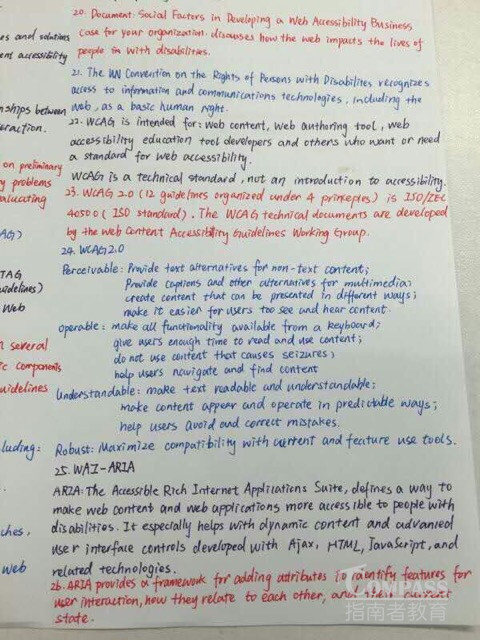 20. Document: Social Factors in Developing a Web Accessibility Business
case for your organization. discusses how the web impacts the lives of
people in with disabilities.
es and solutions
ent accessibility
21. The UN Convention on the Rights of Persons with Disabilites recognizes
access to information and communications technologies, including the
web, as a basic human right.
nships between
eraction.
22. WCAG is intended for: web content, web authoring tool, web
accessibility education tool developers and others who want or need
a standard for web accessibility.
WCAG is a technical standard, not an introduction to accessibility.
on preliminary
y problems
aluating
23. WCAG 2.0 (12 guidelines organized under 4 principles) is ISO/IEC
40500 (ISO standard). The WCAG technical documents are developed
by the Web Content Accessibility Guidelines Working Group.
AG)
24. WCAG 2.0
Perceivable: Provide text alternatives for non-text content;
Provide captions and other alternatives for multimedia;
create content that can be presented in different ways;
make it easier for users too see and hear content.
TAG
idelines)
Web
operable: make all functionality available from a keyboard;
give users enough time to read and use content;
do not use content that causes seizures;
help users navigate and find content
n several
ic components
uidelines
Understandable: make text readable and understandable;
make content appear and operate in predictable ways;
help users avoid and correct mistakes.
luding:
Robust: Maximize compatibility with current and feature use tools.
25. WAI-ARIA
ARIA: The Accessible Rich Internet Applications Suite, defines a way to
make web content and web applications more accessible to people with
disabilities. It especially helps with dynamic content and advanced
user interface controls developed with Ajax, HTML, JavaScript, and
related technologies.
ches,
web
26. ARIA provides a framework for adding attributes to identify features for
user interaction, how they relate to each other, and their current
state.
COMPASS
指南者教育